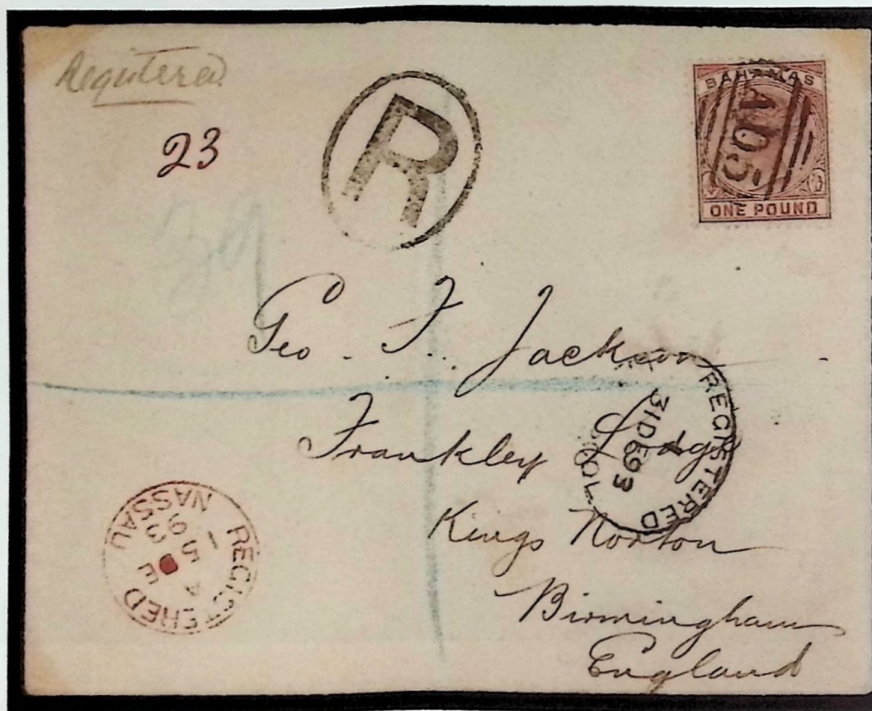 Registered
23
R
BAHAMAS
A05
ONE POUND
39
Geo. F. Jackson
Frankley Lodge
Kings Norton
Birmingham
England
REGISTERED
31 DE 93
REGISTERED
A
15 DE
93
NASSAU